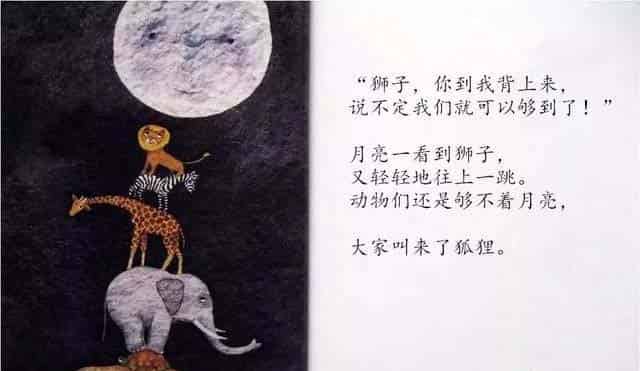 “狮子，你到我背上来，
说不定我们就可以够到了！”
月亮一看到狮子，
又轻轻地往上一跳。
动物们还是够不着月亮，
大家叫来了狐狸。